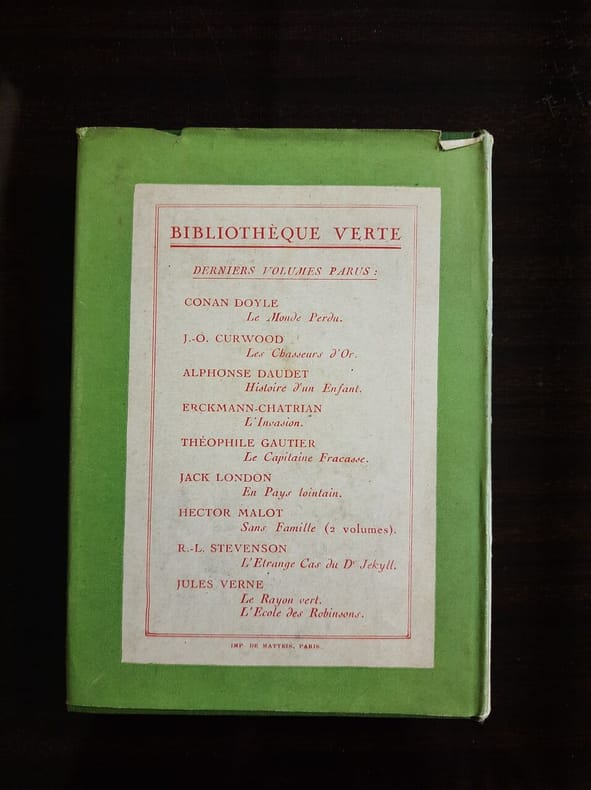 BIBLIOTHÈQUE VERTE
DERNIERS VOLUMES PARUS :
CONAN DOYLE
Le Monde Perdu.
J.-O. CURWOOD
Les Chasseurs d'Or.
ALPHONSE DAUDET
Histoire d'un Enfant.
ERCKMANN-CHATRIAN
L'Invasion.
THÉOPHILE GAUTIER
Le Capitaine Fracasse.
JACK LONDON
En Pays lointain.
HECTOR MALOT
Sans Famille (2 volumes).
R.-L. STEVENSON
L'Etrange Cas du Dr Jekyll.
JULES VERNE
Le Rayon vert.
L'Ecole des Robinsons.
IMP. DE MATTEIS, PARIS.